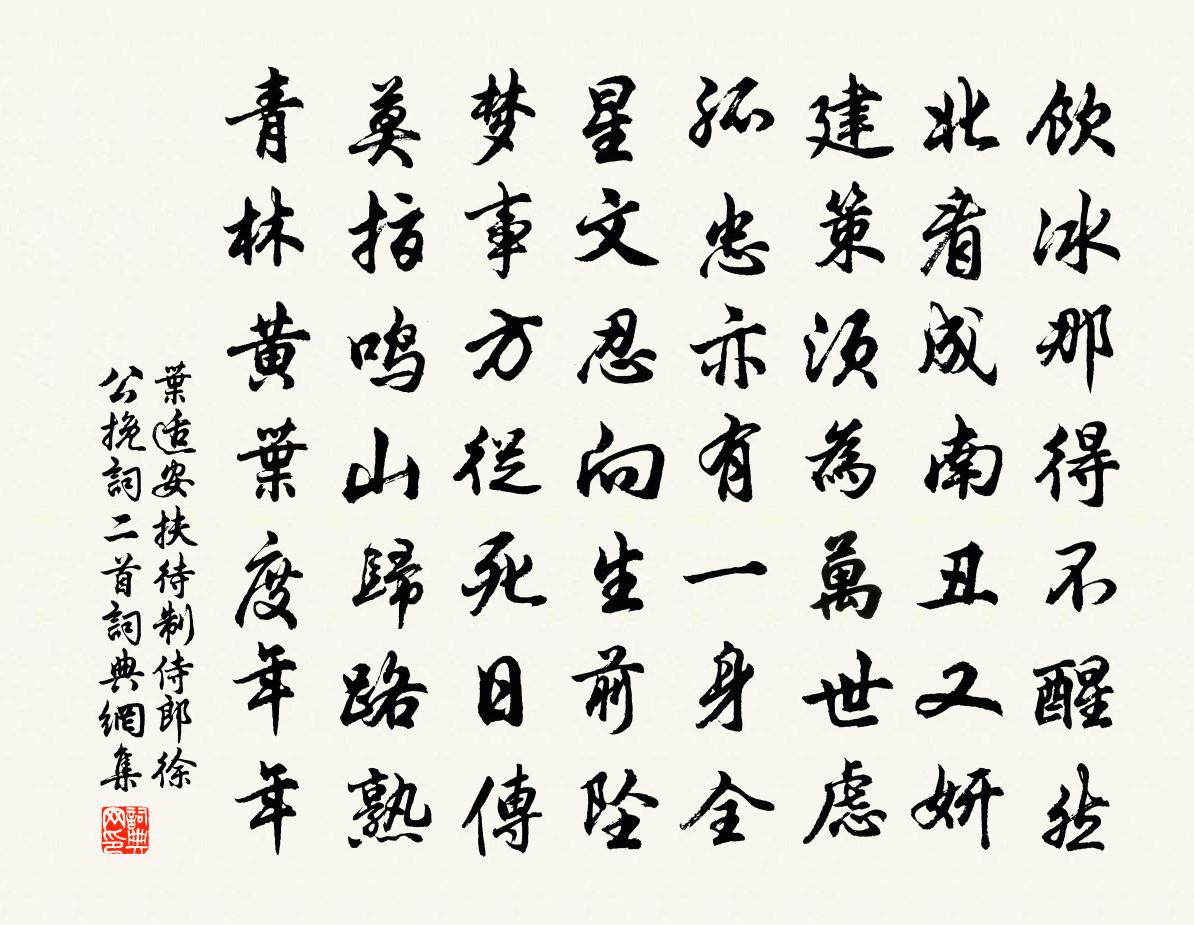 飲冰那得不醒然
北看成南丑又妍
建策須為萬世慮
孤忠亦有一身全
星文忍向生前墜
梦事方從死日傳
莫指鳴山歸路熟
青林黃葉度年年
葉適安扶待制侍郎徐
公挽詞二首詞典網集
詞典
网印